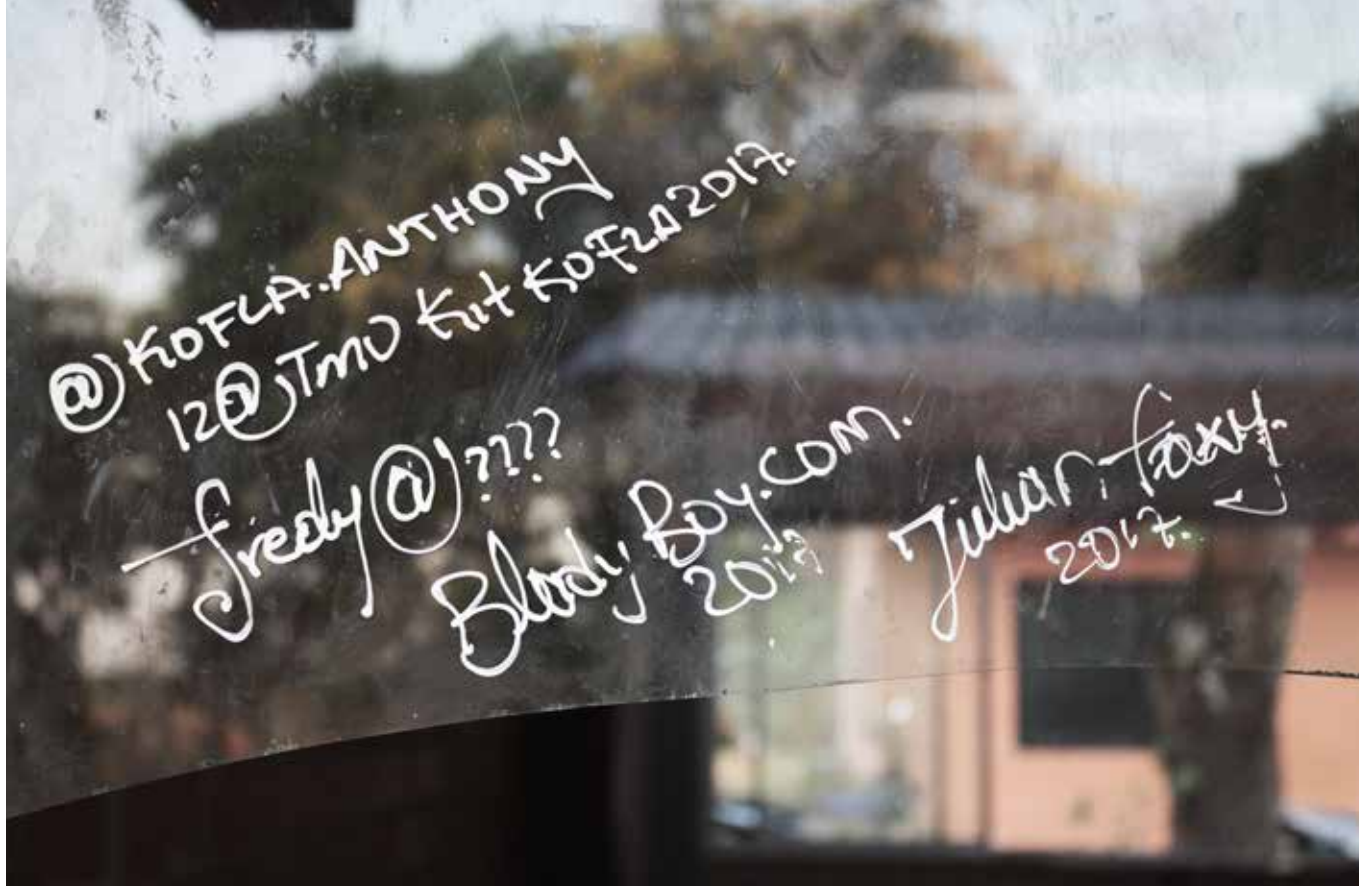 @KOFLA.ANTHONY
12@TMO Kit KOFLA2017.
fredy@????
Bloody Boy.com.
2017
Julian.foxy.
2017.